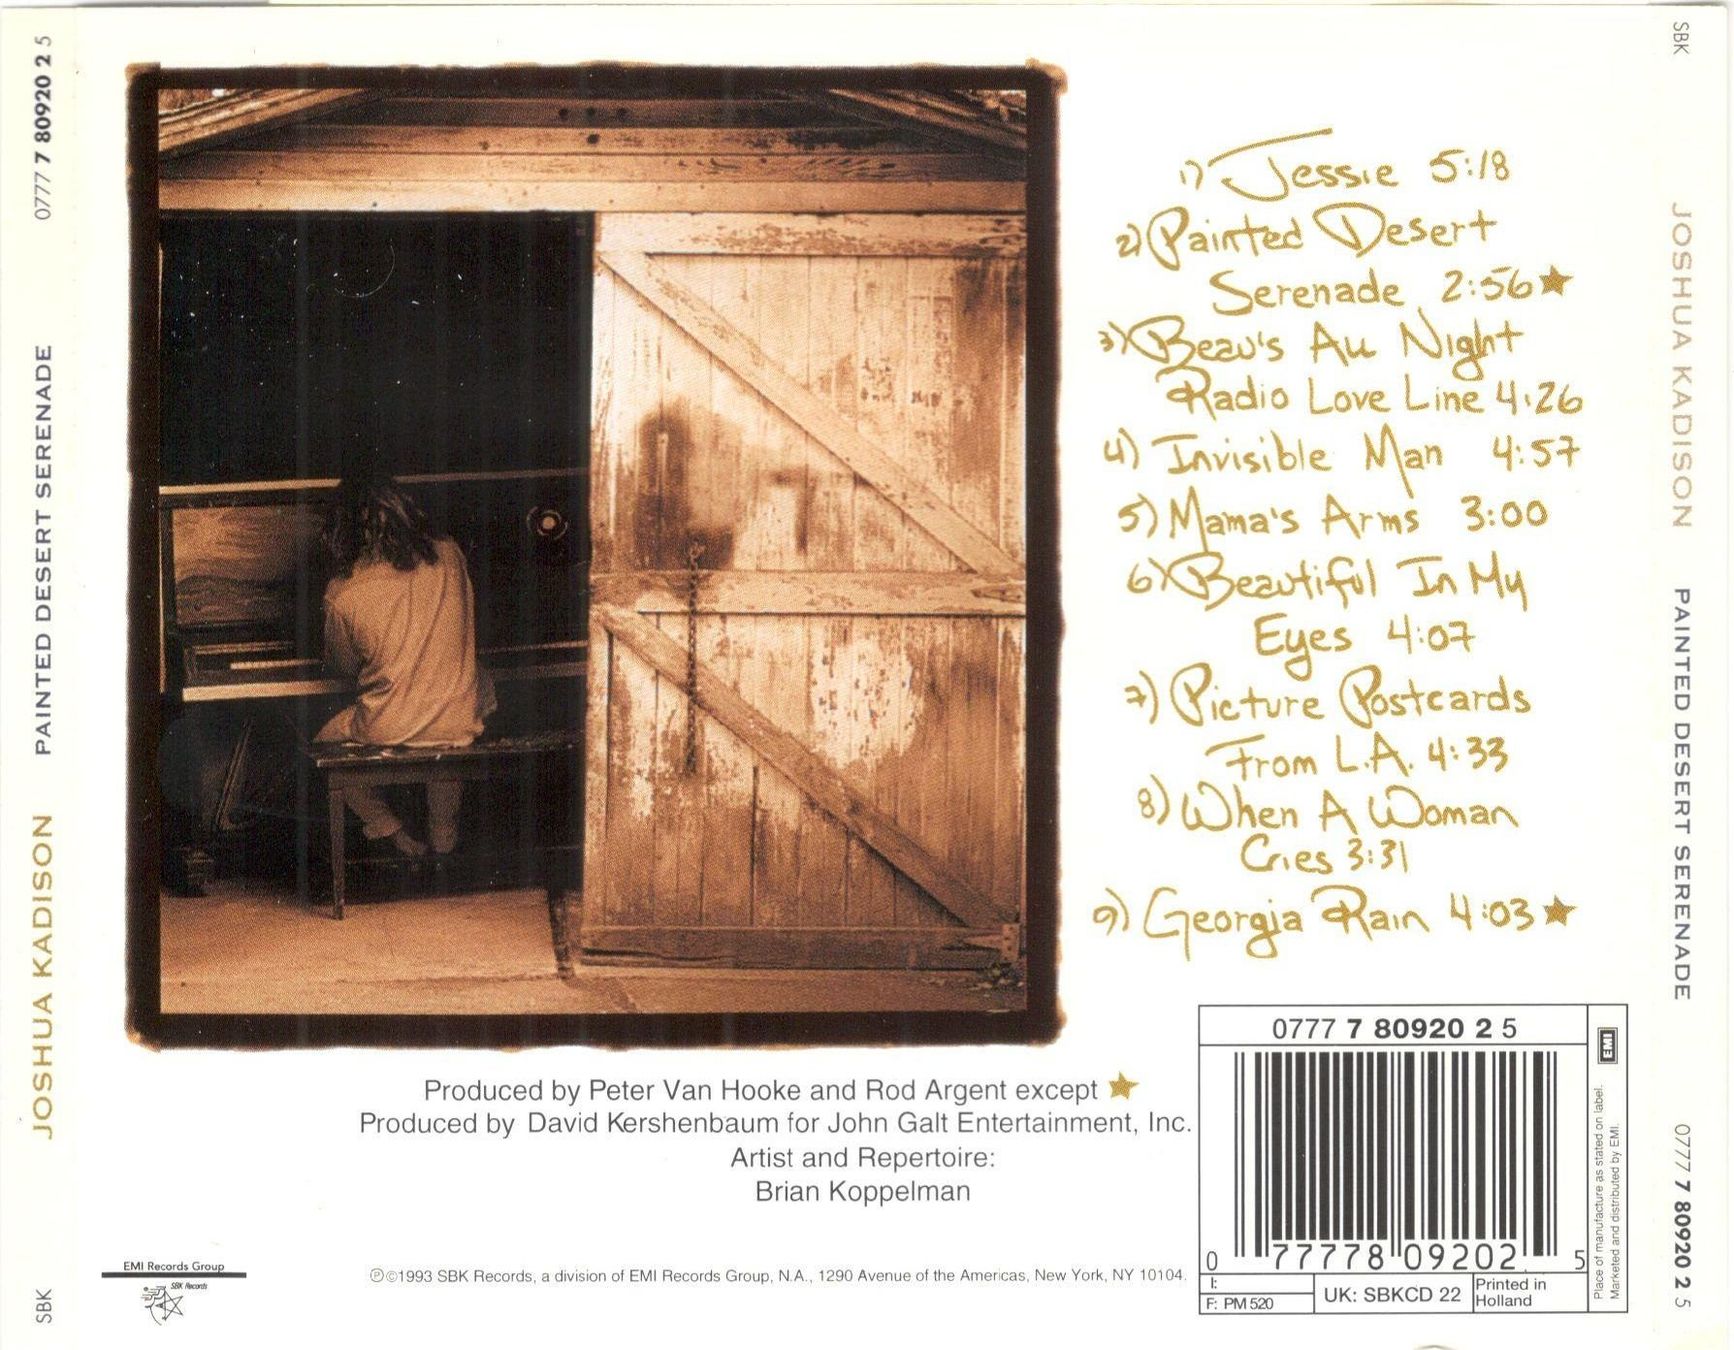 0777 7 80920 2 5
PAINTED DESERT SERENADE
JOSHUA KADISON
SBK
1) Jessie 5:18
2) Painted Desert
Serenade 2:56★
3) Beau's All Night
Radio Love Line 4:26
4) Invisible Man 4:57
5) Mama's Arms 3:00
6) Beautiful In My
Eyes 4:07
7) Picture Postcards
From L.A. 4:33
8) When A Woman
Cries 3:31
9) Georgia Rain 4:03★
Produced by Peter Van Hooke and Rod Argent except ★
Produced by David Kershenbaum for John Galt Entertainment, Inc.
Artist and Repertoire:
Brian Koppelman
EMI Records Group
SBK Records
℗©1993 SBK Records, a division of EMI Records Group, N.A., 1290 Avenue of the Americas, New York, NY 10104.
0777 7 80920 2 5
0 77778 09202 5
I:
F: PM 520
UK: SBKCD 22
Printed in
Holland
EMI
Place of manufacture as stated on label.
Marketed and distributed by EMI.
SBK
JOSHUA KADISON
PAINTED DESERT SERENADE
0777 7 80920 2 5